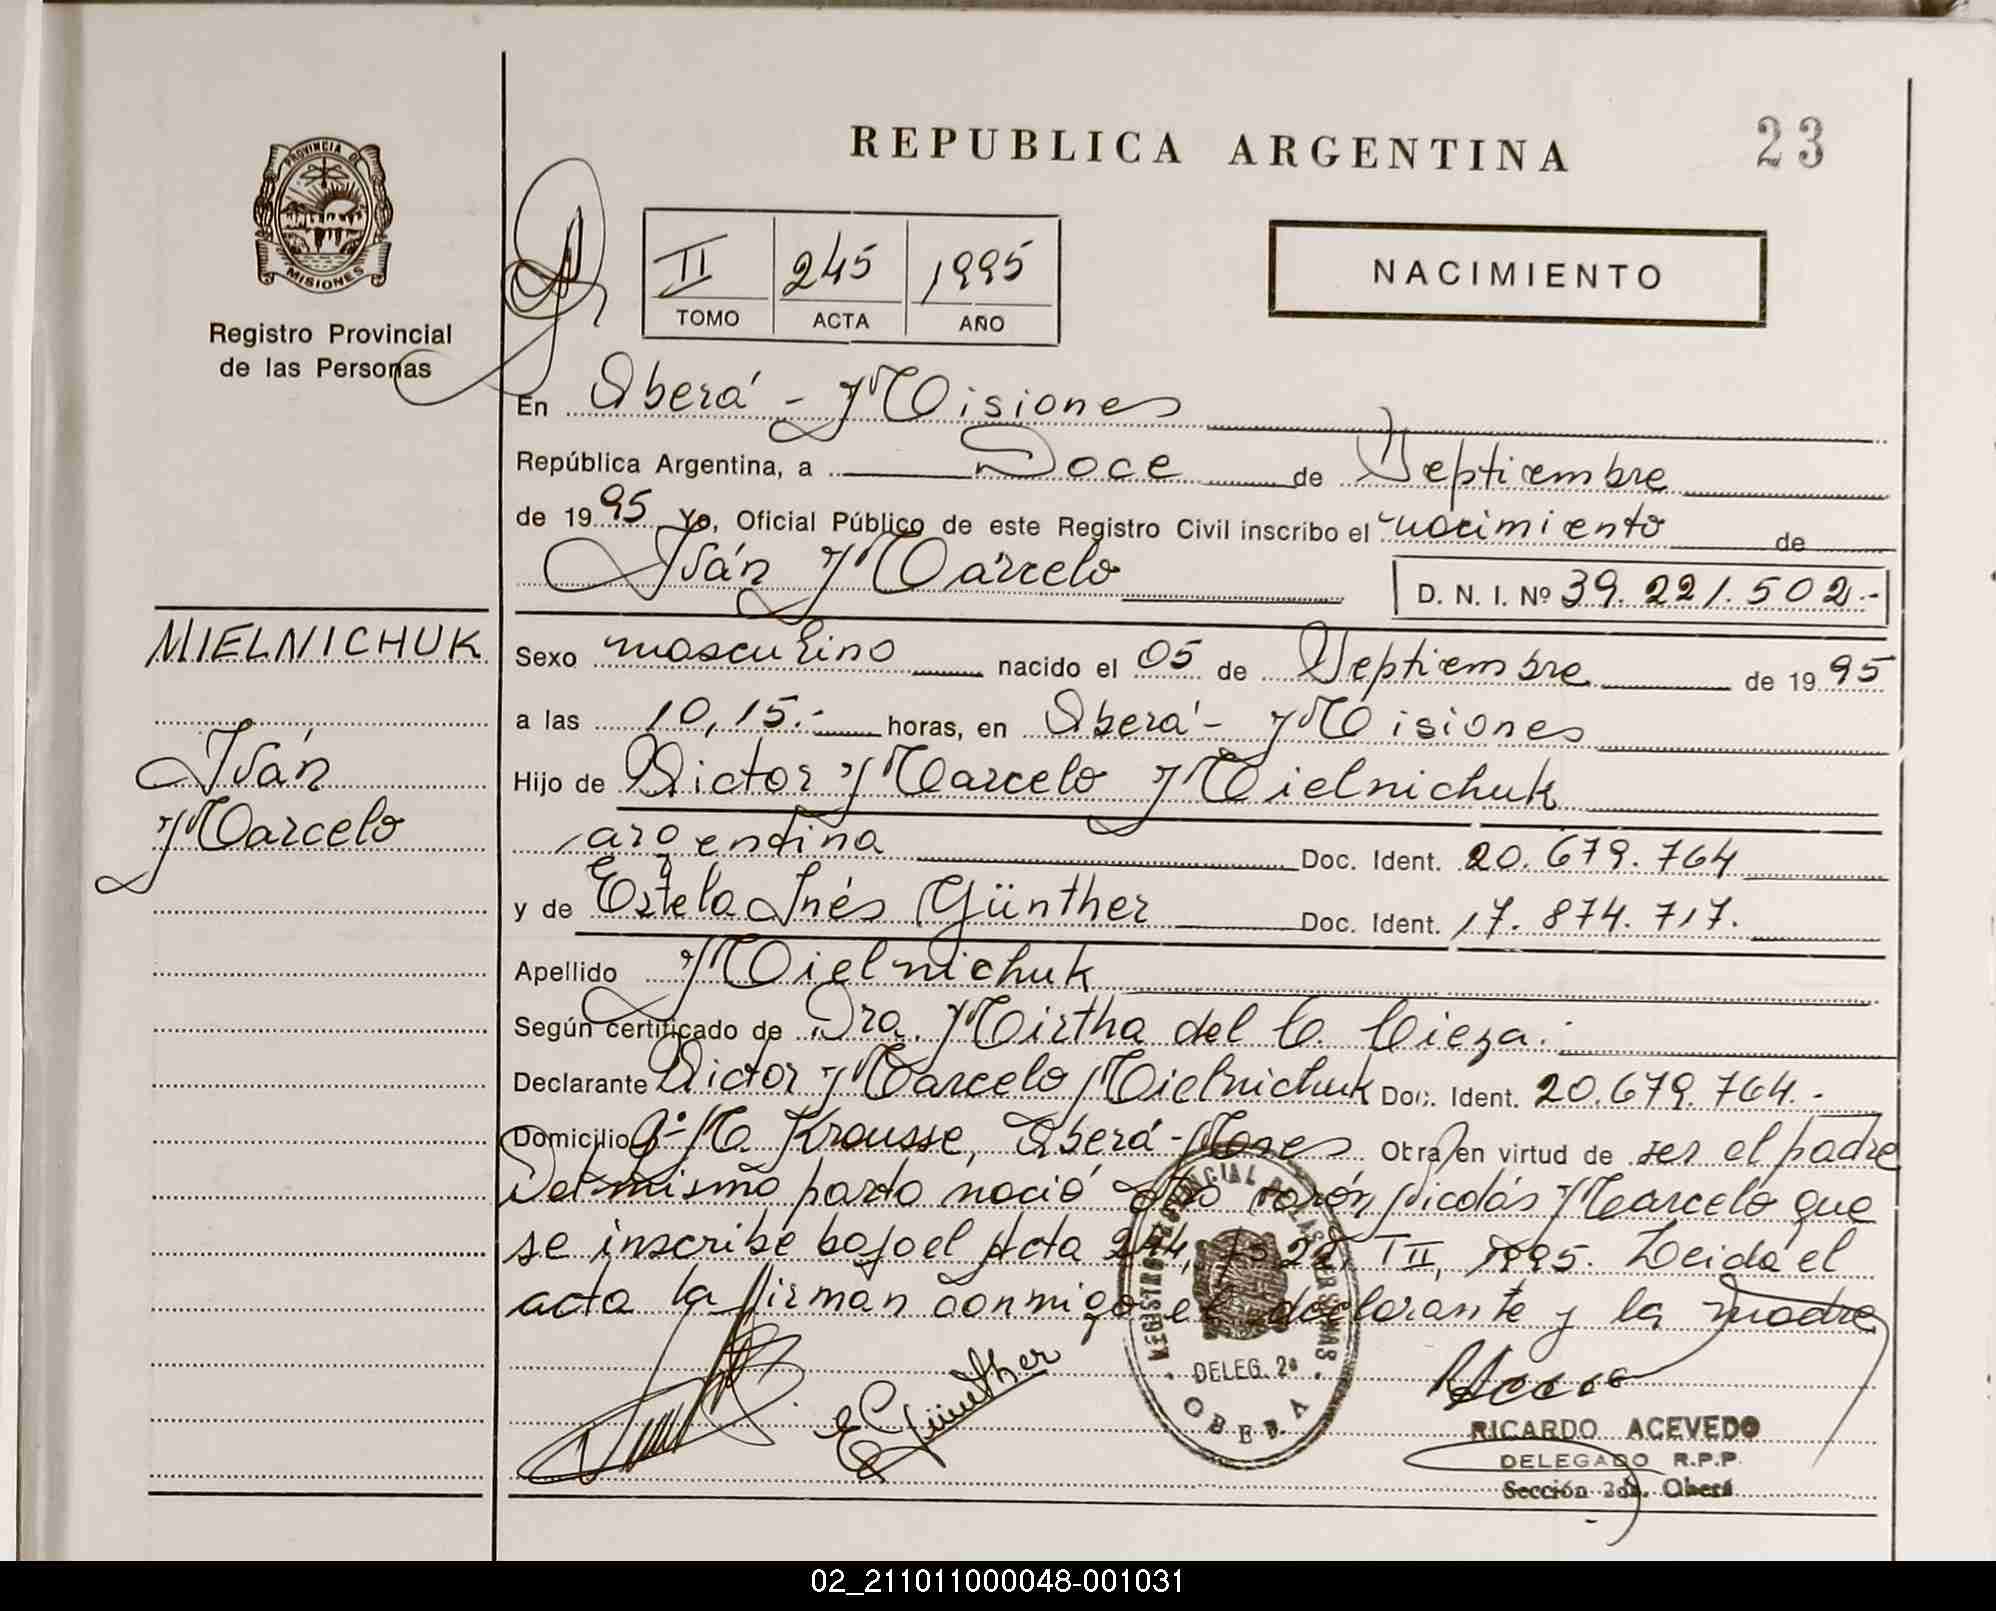 REPUBLICA ARGENTINA
23
PROVINCIA DE
MISIONES
Registro Provincial
de las Personas
II 245 1995
TOMO ACTA AÑO
NACIMIENTO
En Oberá - Misiones
República Argentina, a Doce de Septiembre
de 1995 Yo, Oficial Público de este Registro Civil inscribo el nacimiento de
Iván Marcelo D. N. I. Nº 39.221.502.-
MIELNICHUK
Iván
Marcelo
Sexo masculino nacido el 05 de Septiembre de 1995
a las 10,15.- horas, en Oberá - Misiones
Hijo de Victor Marcelo Mielnichuk
argentina Doc. Ident. 20.679.764
y de Estela Inés Günther Doc. Ident. 17.874.717.
Apellido Mielnichuk
Según certificado de Dra. Mirtha del C. Cieza.
Declarante Victor Marcelo Mielnichuk Doc. Ident. 20.679.764.-
Domicilio Krausse, Oberá - Mones Obra en virtud de ser el padre
Del mismo parto nació otro varón Nicolás Marcelo que
se inscribe bajo el Acta 244, Fs 22, T II, 1995. Leida el
acta la firman conmigo el declarante y la madre
E Günther
REGISTRO PROVINCIAL DE LAS PERSONAS
DELEG. 2ª
OBERA
RICARDO ACEVEDO
DELEGADO R.P.P.
Sección 2da. Oberá
02_211011000048-001031